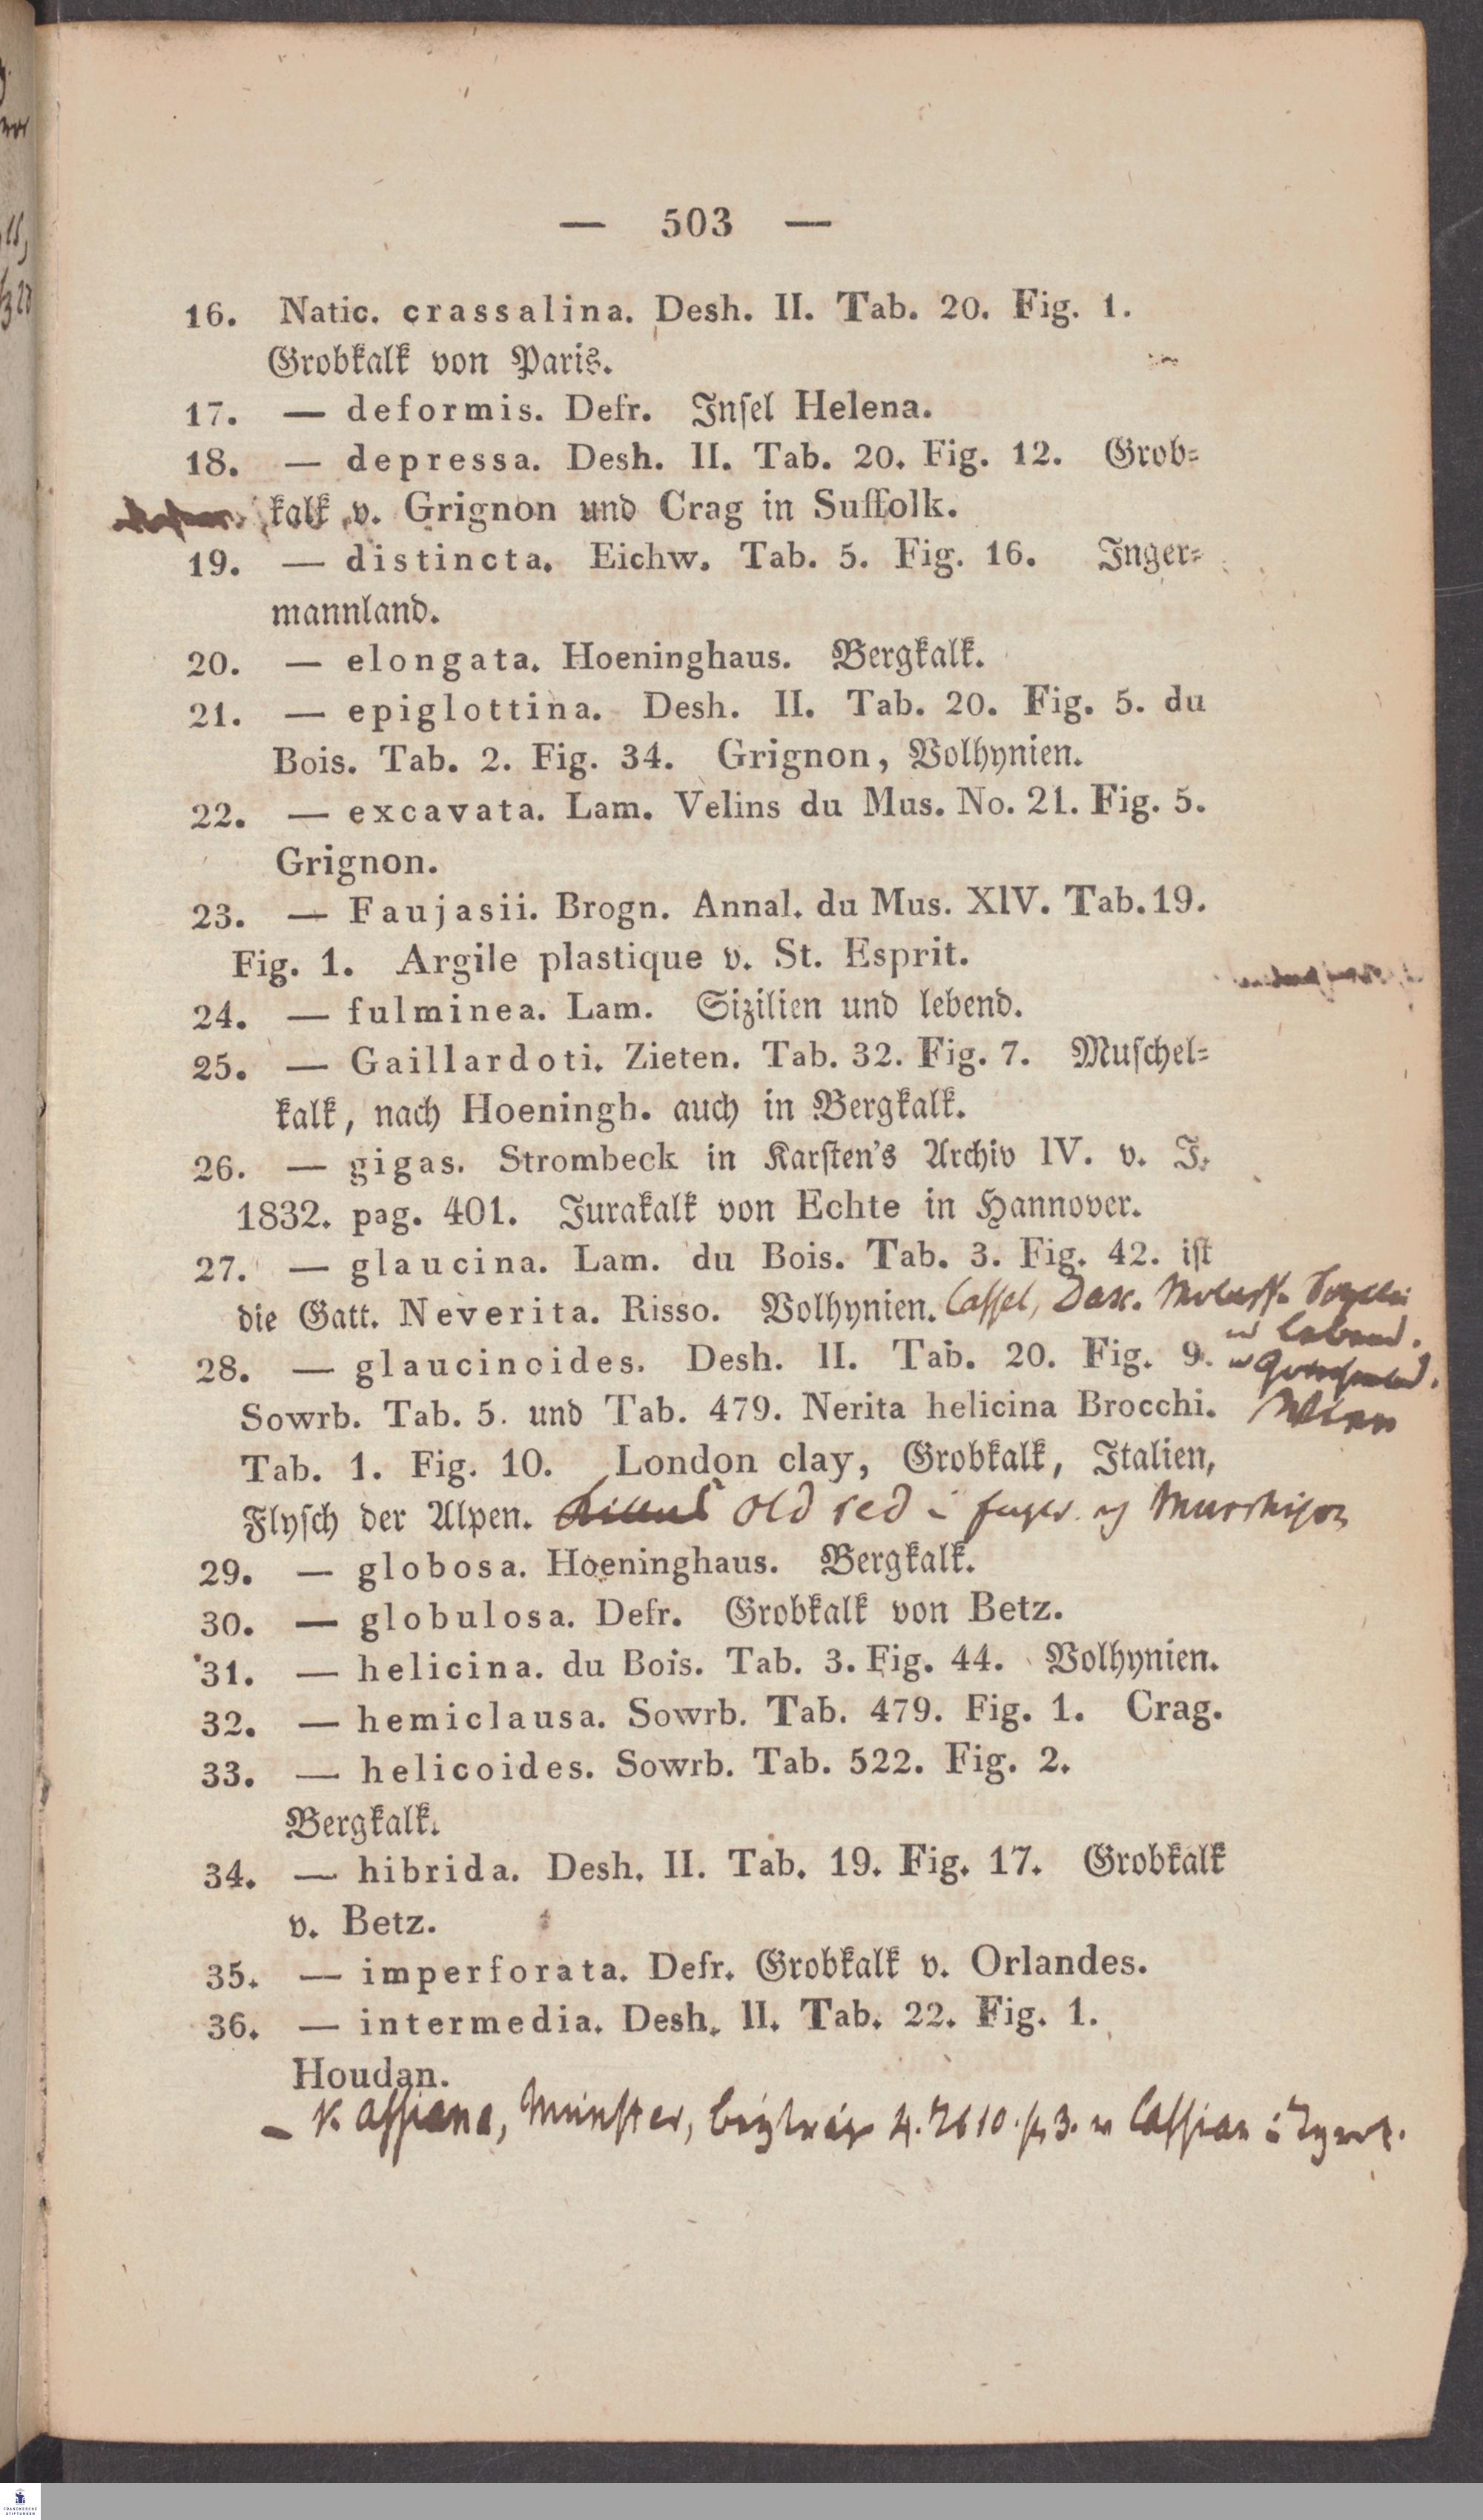 — 503 —
16. Natic. crassalina. Desh. II. Tab. 20. Fig. 1.
Grobkalk von Paris.
17. — deformis. Defr. Insel Helena.
18. — depressa. Desh. II. Tab. 20. Fig. 12. Grob-
kalk v. Grignon und Crag in Suffolk.
19. — distincta. Eichw. Tab. 5. Fig. 16. Inger-
mannland.
20. — elongata. Hoeninghaus. Bergkalk.
21. — epiglottina. Desh. II. Tab. 20. Fig. 5. du
Bois. Tab. 2. Fig. 34. Grignon, Volhynien.
22. — excavata. Lam. Velins du Mus. No. 21. Fig. 5.
Grignon.
23. — Faujasii. Brogn. Annal. du Mus. XIV. Tab. 19.
Fig. 1. Argile plastique v. St. Esprit.
24. — fulminea. Lam. Sizilien und lebend.
25. — Gaillardoti. Zieten. Tab. 32. Fig. 7. Muschel-
kalk, nach Hoeningh. auch in Bergkalk.
26. — gigas. Strombeck in Karsten's Archiv IV. v. J.
1832. pag. 401. Jurakalk von Echte in Hannover.
27. — glaucina. Lam. du Bois. Tab. 3. Fig. 42. ist
die Gatt. Neverita. Risso. Volhynien. Cassel, Dax.
lebend.
28. — glaucinoides. Desh. II. Tab. 20. Fig. 9.
Sowrb. Tab. 5. und Tab. 479. Nerita helicina Brocchi.
Wien
Tab. 1. Fig. 10. London clay, Grobkalk, Italien,
Flysch der Alpen. Old red Murchison
29. — globosa. Hoeninghaus. Bergkalk.
30. — globulosa. Defr. Grobkalk von Betz.
31. — helicina. du Bois. Tab. 3. Fig. 44. Volhynien.
32. — hemiclausa. Sowrb. Tab. 479. Fig. 1. Crag.
33. — helicoides. Sowrb. Tab. 522. Fig. 2.
Bergkalk.
34. — hibrida. Desh. II. Tab. 19. Fig. 17. Grobkalk
v. Betz.
35. — imperforata. Defr. Grobkalk v. Orlandes.
36. — intermedia. Desh. II. Tab. 22. Fig. 1.
Houdan.
— Münster, Cassian
FRANCKESCHE
STIFTUNGEN